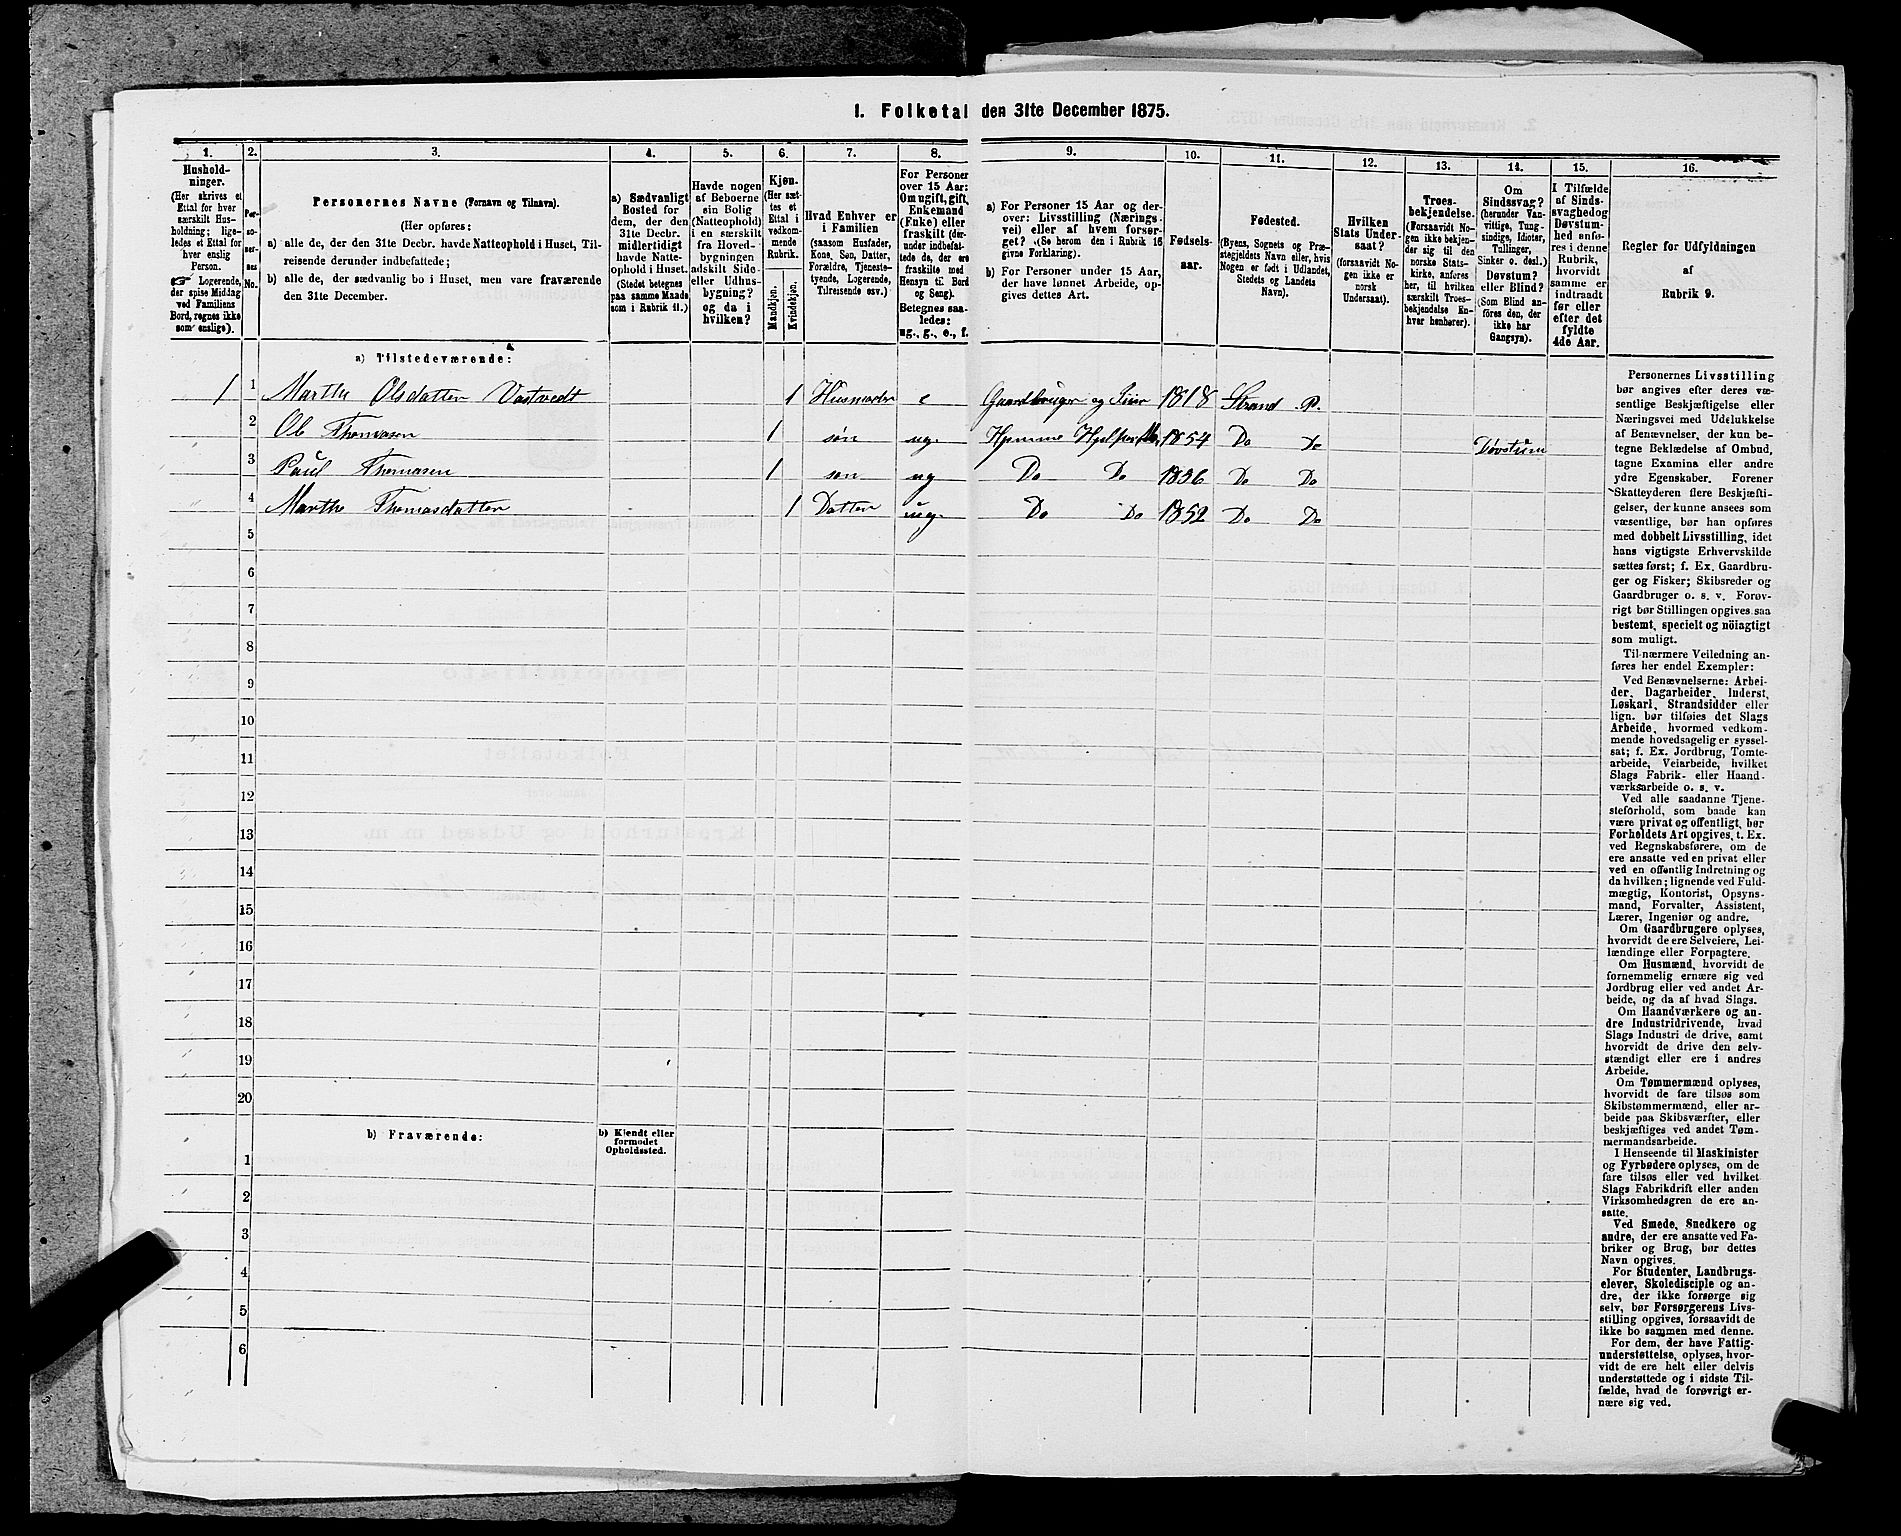 1. Folketal den 31te December 1875.
1.
Hushold-
ninger.
(Her skrives et
Ettal for hver
særskilt Hus-
holdning; lige-
ledes et Ettal for
hver enslig
Person.
☞ Logerende,
der spise Middag
ved Familiens
Bord, regnes ikke
som enslige).
2.
Per-
so-
ner-
nes
No.
3.
Personernes Navne (Fornavn og Tilnavn).
(Her opføres:
a) alle de, der den 31te Decbr. havde Natteophold i Huset, Til-
reisende derunder indbefattede;
b) alle de, der sædvanlig bo i Huset, men vare fraværende
den 31te December.
4.
a) Sædvanligt
Bosted for
dem, der den
31te Decbr.
midlertidigt
havde Natte-
ophold i Huset.
(Stedet betegnes
paa samme Maade
som i Rubrik 11.)
5.
Havde nogen
af Beboerne
sin Bolig
(Natteophold)
i en særskilt
fra Hoved-
bygningen
adskilt Side-
eller Udhus-
bygning?
og da i
hvilken?
6.
Kjøn.
(Her sæt-
tes et
Ettal i
vedkom-
mende
Rubrik.
Mandkjøn.
Kvindekjøn.
7.
Hvad Enhver er
i Familien
(saasom Husfader,
Kone, Søn, Datter,
Forældre, Tjeneste-
tyende, Logerende,
Tilreisende osv.)
8.
For Personer
over 15 Aar:
Om ugift, gift,
Enkemand
(Enke) eller
fraskilt (der-
under indbefat-
tede de, der ere
fraskilte med
Hensyn til Bord
og Seng).
Betegnes saa-
ledes:
ug., g., e., f.
9.
a) For Personer 15 Aar og der-
over: Livsstilling (Nærings-
vei) eller af hvem forsør-
get? (Se herom den i Rubrik 16
givne Forklaring).
b) For Personer under 15 Aar,
der have lønnet Arbeide, op-
gives dettes Art.
10.
Fødsels-
aar.
11.
Fødested.
(Byens, Sognets og Præ-
stegjeldets Navn eller, hvis
Nogen er født i Udlandet,
Stedets og Landets
Navn).
12.
Hvilken
Stats Under-
saat?
(forsaavidt No-
gen ikke er
norsk
Undersaat).
13.
Troes-
bekjendelse.
(Forsaavidt No-
gen ikke bekjen-
der sig til den
norske Stats-
kirke, anføres
her, til hvilken
særskilt Troes-
bekjendelse En-
hver henhører).
14.
Om
Sindssvag?
(herunder Van-
vittige, Tung-
sindige, Idioter,
Tullinger,
Sinker o. desl.)
Døvstum?
eller Blind?
(Som Blind an-
føres den, der
ikke har
Gangsyn).
15.
I Tilfælde
af Sinds-
svaghed og
Døvstum-
hed anfø-
res i denne
Rubrik,
hvorvidt
samme er
indtraadt
før eller
efter det
fyldte
4de Aar.
16.
Regler for Udfyldningen
af
Rubrik 9.
a) Tilstedeværende:
1 1 Marthe Olsdatter Vastvedt 1 Husmoder e Gaardbruger og 1818 Strand P.
2 Ole Thomasen 1 søn ug. Hjemme 1854 Do Do Døvstum
3 Paul Thomasen 1 søn ug Do Do 1856 Do Do
4 Marthe Thomasdatter 1 Datter ug. Do Do 1852 Do Do
5
6
7
8
9
10
11
12
13
14
15
16
17
18
19
20
b) Fraværende:
b) Kjendt eller
formodet
Opholdssted.
1
2
3
4
5
6
Personernes Livsstilling
bør angives efter deres væ-
sentlige Beskjæftigelse eller
Næringsvei med Udelukkelse
af Benævnelser, der kun be-
tegne Beklædelse af Ombud,
tagne Examina eller andre
ydre Egenskaber. Forener
Skatteyderen flere Beskjæfti-
gelser, der kunne ansees som
væsentlige, bør han opføres
med dobbelt Livsstilling, idet
hans vigtigste Erhvervskilde
sættes først; f. Ex. Gaardbru-
ger og Fisker; Skibsreder og
Gaardbruger o. s. v. Forøv-
rigt bør Stillingen opgives saa
bestemt, specielt og nöiagtigt
som muligt.
Til nærmere Veiledning an-
føres her endel Exempler:
Ved Benævnelserne: Arbei-
der, Dagarbeider, Inderst,
Løskarl, Strandsidder eller
lign. bør tilføies det Slags
Arbeide, hvormed vedkom-
mende hovedsagelig er syssel-
sat; f. Ex. Jordbrug, Tomte-
arbeide, Veiarbeide, hvilket
Slags Fabrik- eller Haand-
værksarbeide o. s. v.
Ved alle saadanne Tjene-
steforhold, som baade kan
være privat og offentligt, bør
Forholdets Art opgives, t. Ex.
ved Regnskabsførere, om de
ere ansatte ved en privat eller
ved en offentlig Indretning og
da hvilken; lignende ved Fuld-
mægtig, Kontorist, Opsyns-
mand, Forvalter, Assistent,
Lærer, Ingeniør og andre.
Om Gaardbrugere oplyses,
hvorvidt de ere Selveiere, Lei-
lændinge eller Forpagtere.
Om Husmænd, hvorvidt de
fornemmelig ernære sig ved
Jordbrug eller ved andet Ar-
beide, og da af hvad Slags.
Om Haandværkere og an-
dre Industridrivende, hvad
Slags Industri de drive, samt
hvorvidt de drive den selv-
stændigt eller ere i andres
Arbeide.
Om Tømmermænd oplyses,
hvorvidt de fare tilsøs som
Skibstømmermænd, eller ar-
beide paa Skibsværfter, eller
beskjæftiges ved andet Tøm-
mermandsarbeide.
I Henseende til Maskinister
og Fyrbødere oplyses, om de
fare tilsøs eller ved hvilket
Slags Fabrikdrift eller anden
Virksomhedsgren de ere an-
satte.
Ved Smede, Snedkere og
andre, der ere ansatte ved Fa-
briker og Brug, bør dettes
Navn opgives.
For Studenter, Landbrugs-
elever, Skoledisciple og an-
dre, der ikke forsørge sig
selv, bør Forsørgerens Livs-
stilling opgives, forsaavidt de
ikke bo sammen med denne.
For dem, der have Fattig-
understøttelse, oplyses, hvor-
vidt de ere helt eller delvis
understøttede og i sidste Til-
fælde, hvad de forøvrigt er-
nære sig ved.